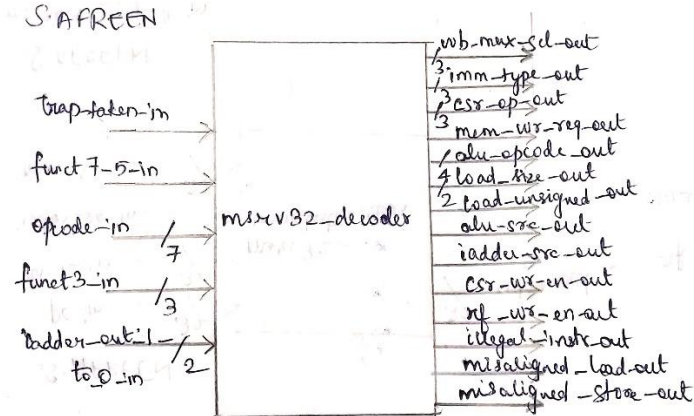 S. AFREEN
trap-taken-in
funct7-5-in
opcode-in
7
funct3_in
3
iadder_out_1_
to_0_in
2
msrv32_decoder
wb-mux-sel-out
3
imm_type_out
3
csr-op-out
3
mem_wr_req_out
alu_opcode_out
4
load_size_out
2
load_unsigned_out
alu-src-out
iadder-src-out
csr-wr-en-out
rf_wr_en_out
illegal_instr_out
misaligned_load_out
misaligned_store_out